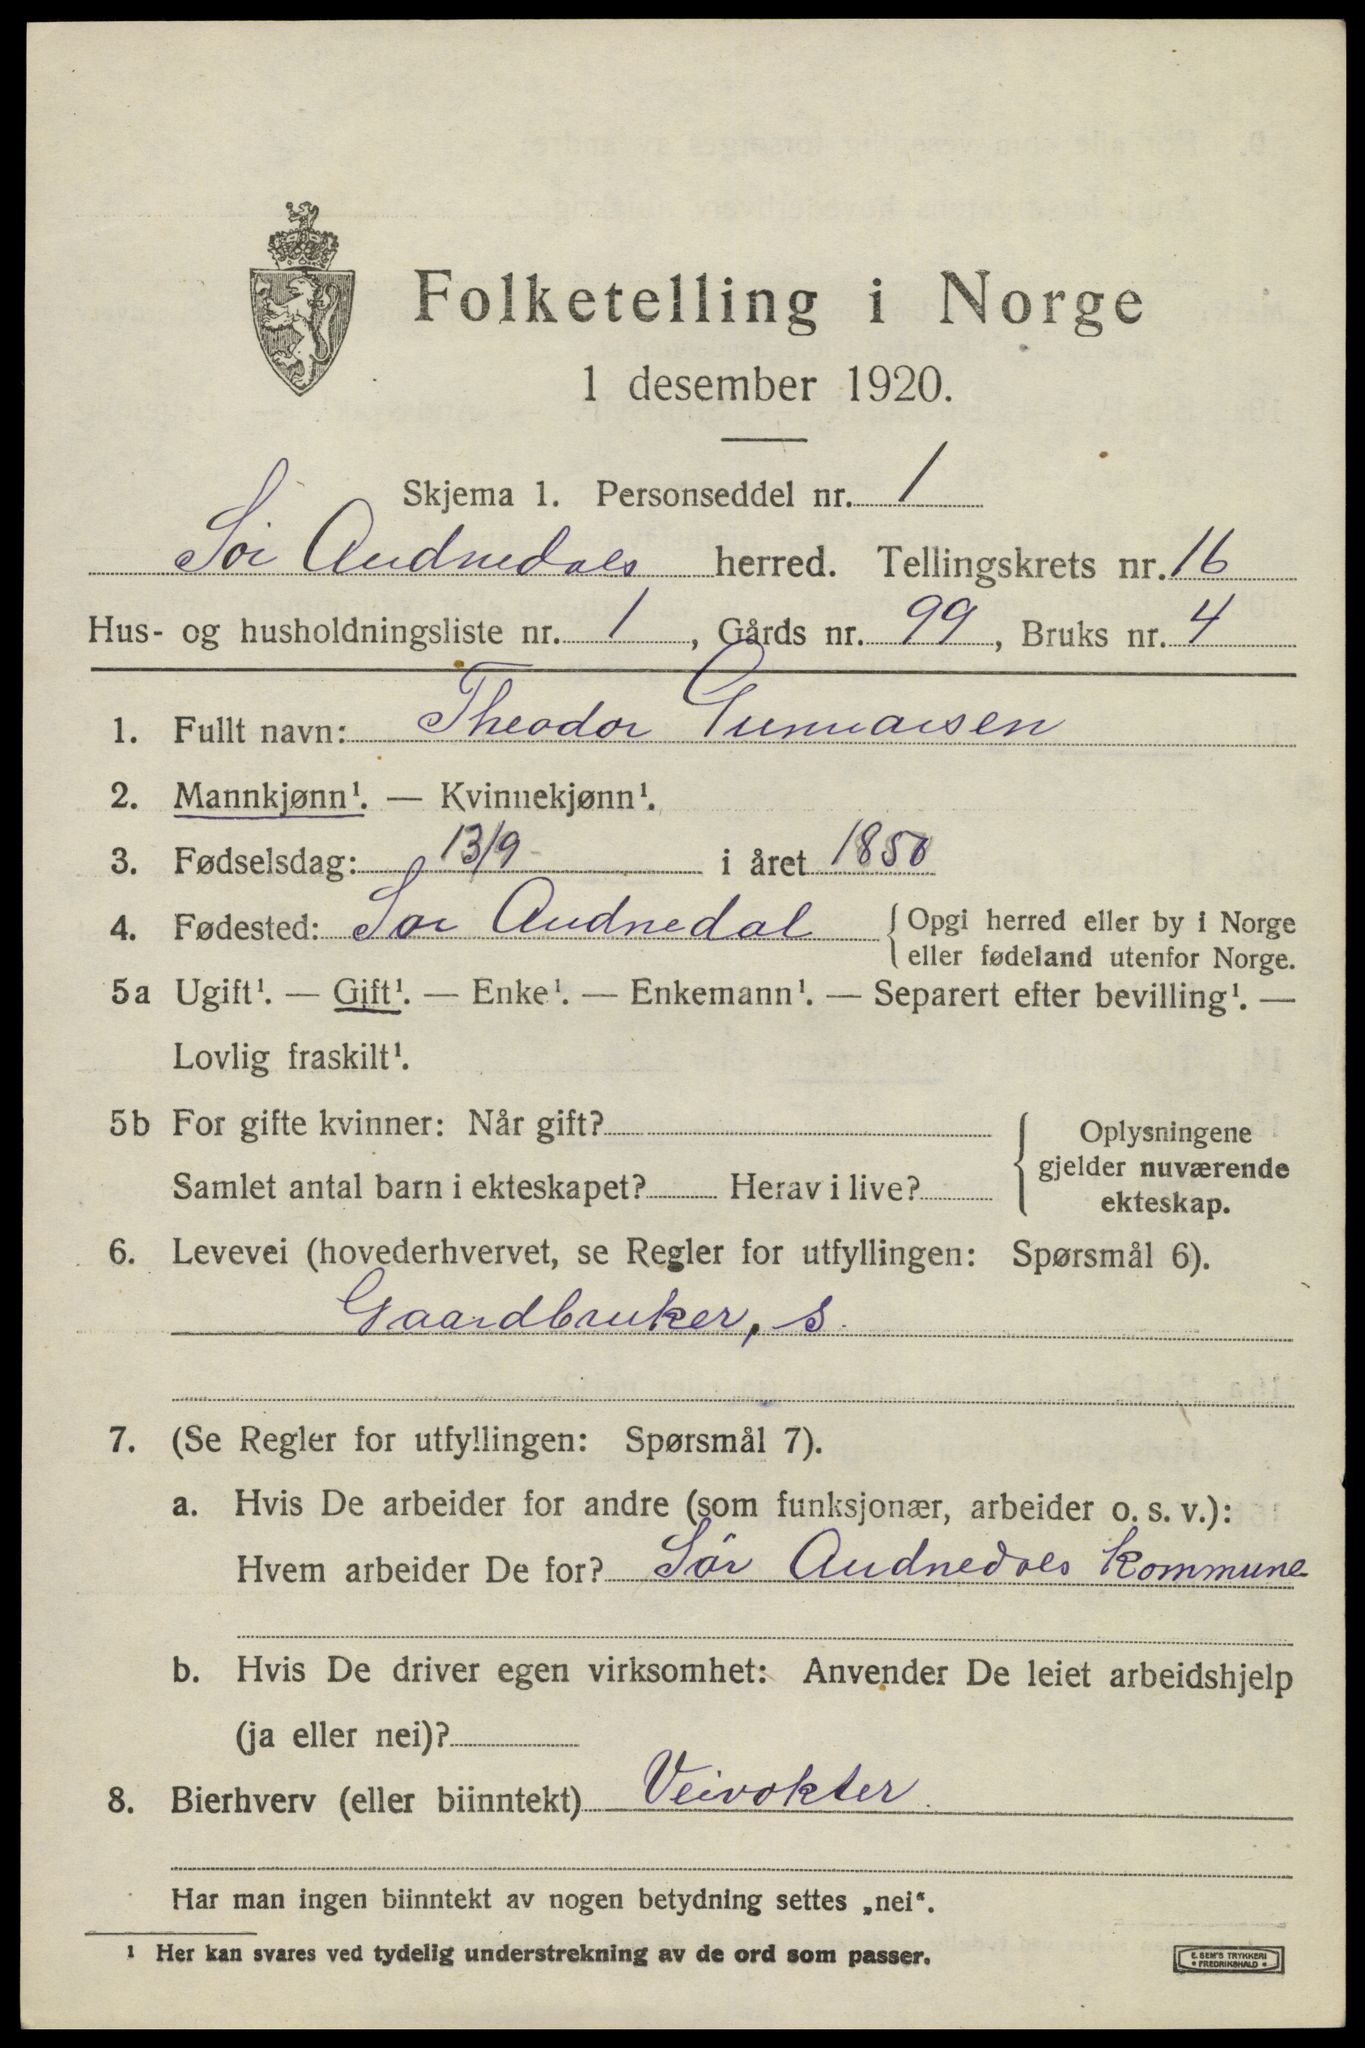 Folketelling i Norge
1 desember 1920.
Skjema 1. Personseddel nr. 1
Sør Audnedals herred. Tellingskrets nr. 16
Hus- og husholdningsliste nr. 1, Gårds nr. 99, Bruks nr. 4
1. Fullt navn: Theodor Gunnarsen
2. Mannkjønn¹. — Kvinnekjønn¹.
3. Fødselsdag: 13/9 i året
4. Fødested: Sør Audnedal { Opgi herred eller by i Norge
eller fødeland utenfor Norge.
5a Ugift¹. — Gift¹. — Enke¹. — Enkemann¹. — Separert efter bevilling¹. —
Lovlig fraskilt¹.
5b For gifte kvinner: Når gift?
Samlet antal barn i ekteskapet? Herav i live?
{ Oplysningene
gjelder nuværende
ekteskap.
6. Levevei (hovederhvervet, se Regler for utfyllingen: Spørsmål 6).
Gaardbruker, s.
7. (Se Regler for utfyllingen: Spørsmål 7).
a. Hvis De arbeider for andre (som funksjonær, arbeider o. s. v.):
Hvem arbeider De for? Sør Audnedals kommune
b. Hvis De driver egen virksomhet: Anvender De leiet arbeidshjelp
(ja eller nei)?
8. Bierhverv (eller biinntekt) Veivokter.
Har man ingen biinntekt av nogen betydning settes „nei“.
¹ Her kan svares ved tydelig understrekning av de ord som passer.
E. SEM'S TRYKKERI
• FREDRIKSHALD •